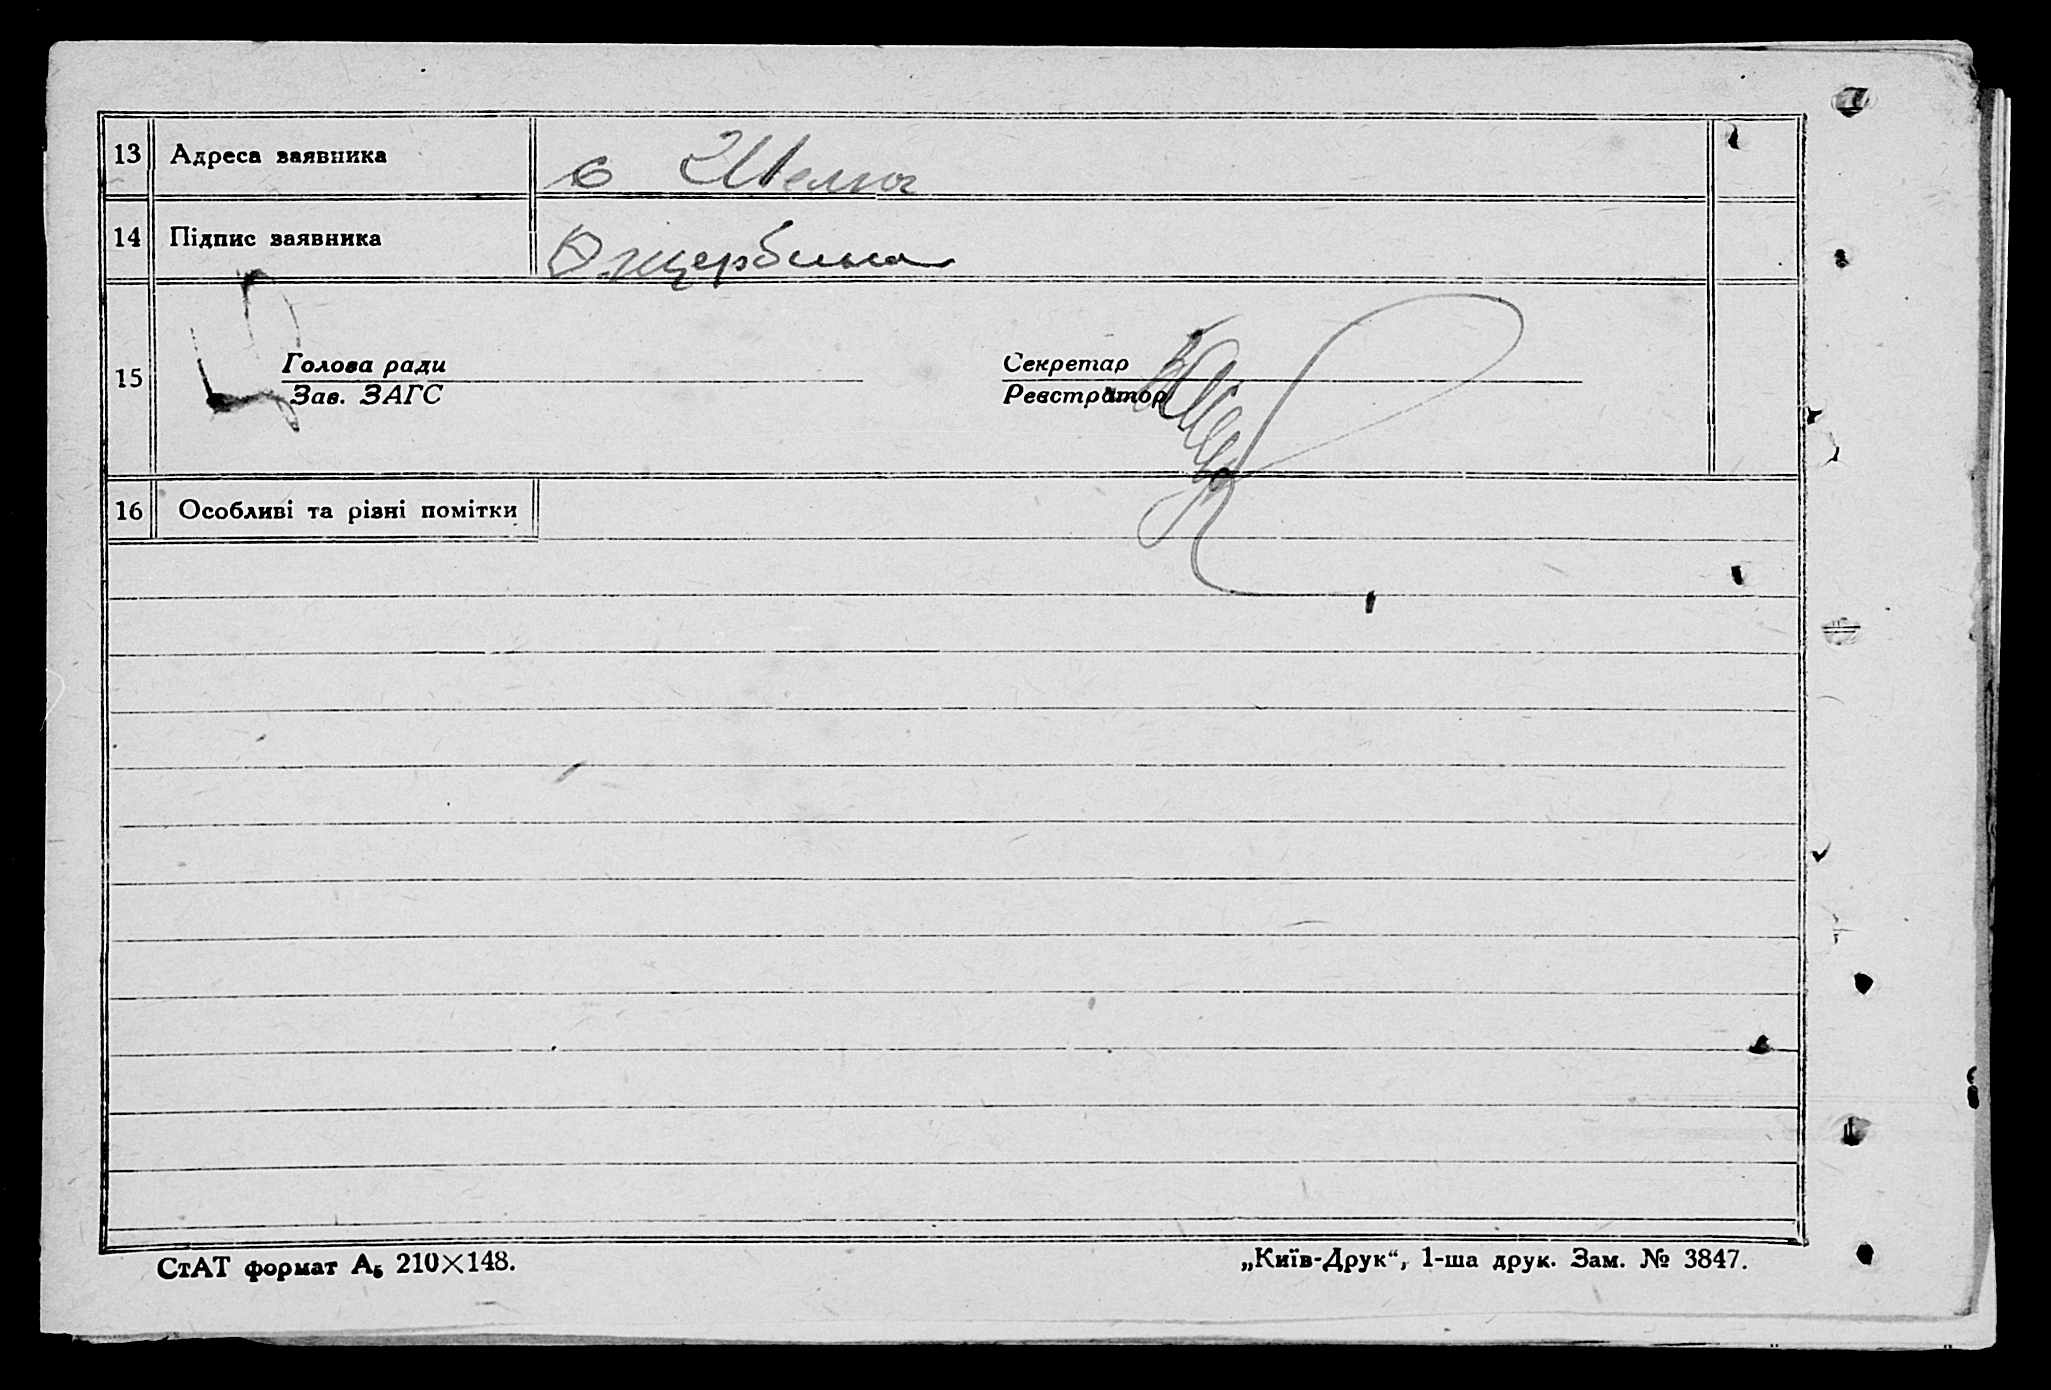 13 Адреса заявника с
14 Підпис заявника Ющербина
15
Голова ради Секретар
Зав. ЗАГС Реєстратор
16 Особливі та різні помітки
СтАТ формат А₅ 210×148. „Київ-Друк“, 1-ша друк. Зам. № 3847.